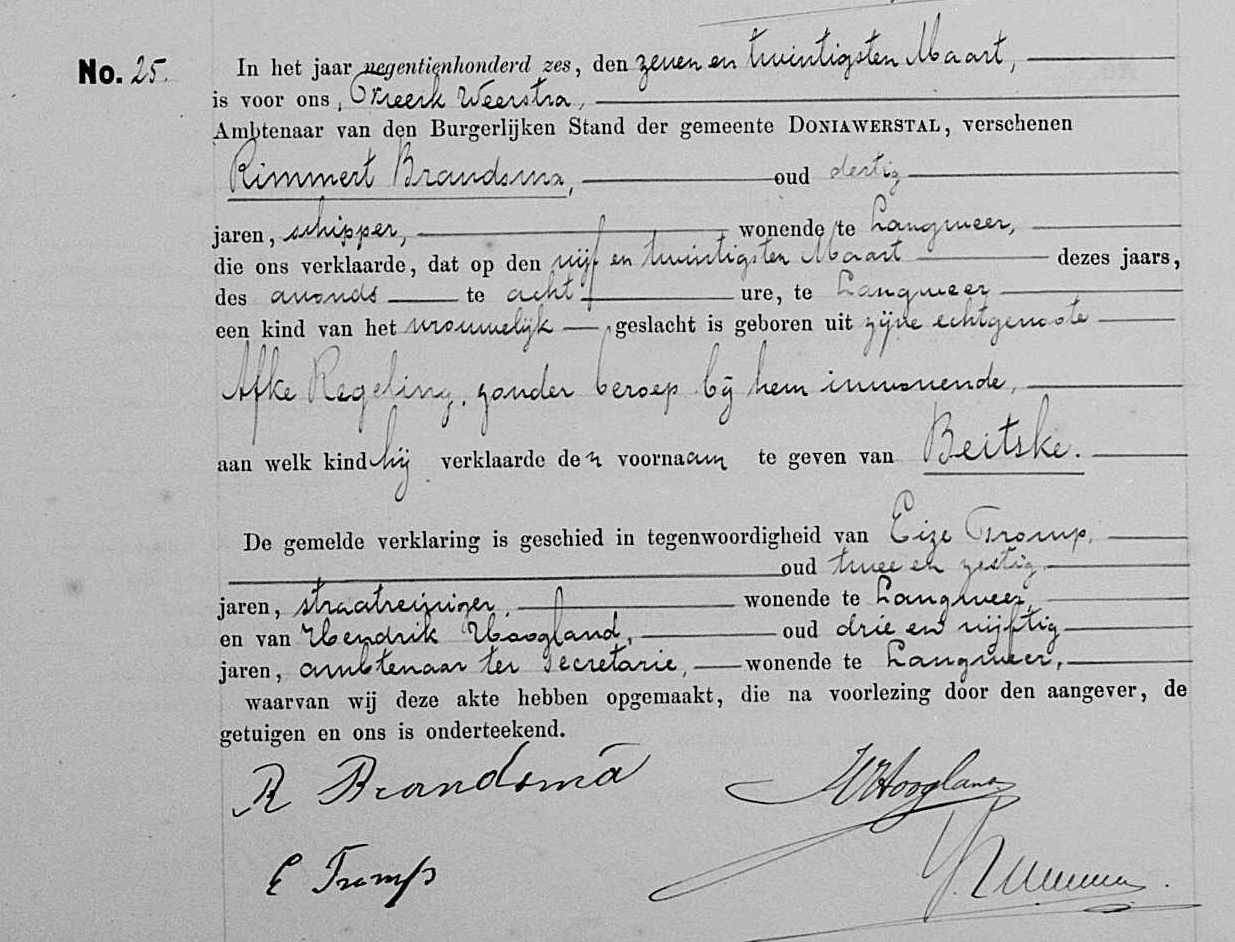 No. 25.
In het jaar negentienhonderd zes, den zeven en twintigsten Maart,
is voor ons, Weerstra,
Ambtenaar van den Burgerlijken Stand der gemeente DONIAWERSTAL, verschenen
Rimmert Brandsma, oud dertig
jaren, schipper, wonende te Langweer,
die ons verklaarde, dat op den vijf en twintigsten Maart dezes jaars,
des avonds te acht ure, te Langweer
een kind van het vrouwelijk geslacht is geboren uit zijne echtgenoote
Afke Regeling, zonder beroep bij hem inwonende,
aan welk kind hij verklaarde den voornaam te geven van Beitske.
De gemelde verklaring is geschied in tegenwoordigheid van Eize Tromp,
oud twee en zestig
jaren, straatreiniger, wonende te Langweer,
en van Hendrik Hoogland, oud drie en vijftig
jaren, ambtenaar ter Secretarie, wonende te Langweer,
waarvan wij deze akte hebben opgemaakt, die na voorlezing door den aangever, de
getuigen en ons is onderteekend.
R Brandsma
HHoogland
E Tromp